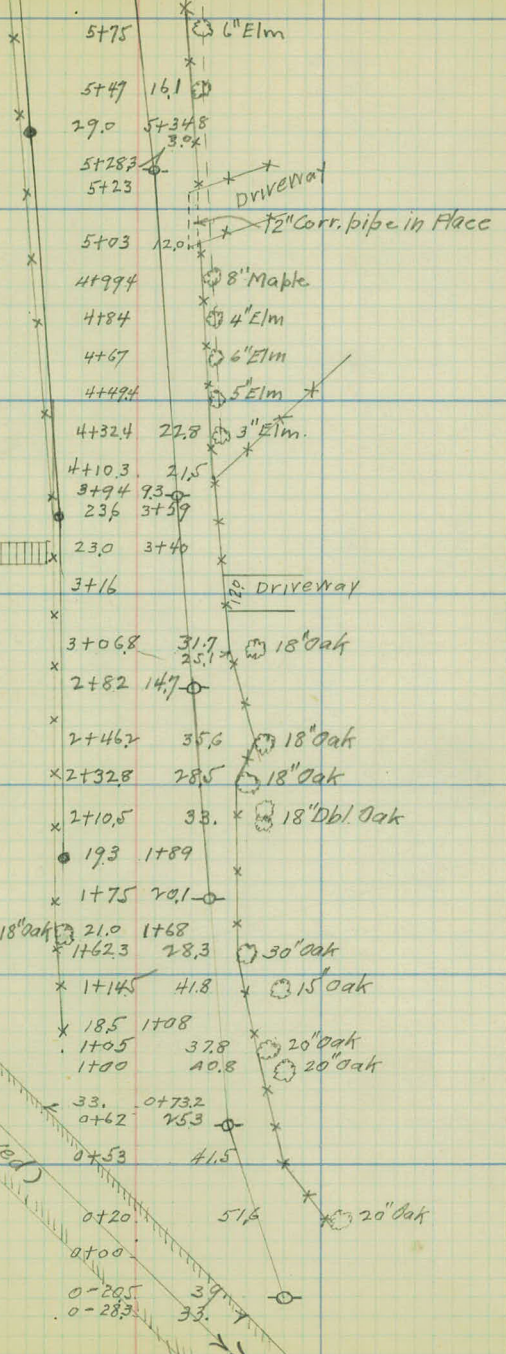 5+75 6" Elm
5+47 16.1
29.0 5+34.8
3.0
5+28.3
5+23 Driveway
12" Corr. pipe in Place
5+03 12.0
4+99.4 8" Maple
4+84 4" Elm
4+67 6" Elm
4+49.4 5" Elm
4+32.4 22.8 3" Elm.
4+10.3 21.5
3+94 9.3
23.6 3+59
23.0 3+40
3+16 12.0 Driveway
3+06.8 31.7 18" Oak
25.1
2+82 14.7
2+46.2 35.6 18" Oak
2+32.8 28.5 18" Oak
2+10.5 33. 18" Dbl. Oak
19.3 1+89
1+75 20.1
18" Oak 21.0 1+68
1+62.3 28.3 30" Oak
1+14.5 41.8 15" Oak
18.5 1+08
1+05 37.8 20" Oak
1+00 40.8 20" Oak
33. 0+73.2
0+62 25.3
0+53 41.5
ed)
0+20 51.6 20" Oak
0+00
0-20.5 39.
0-28.3 33.